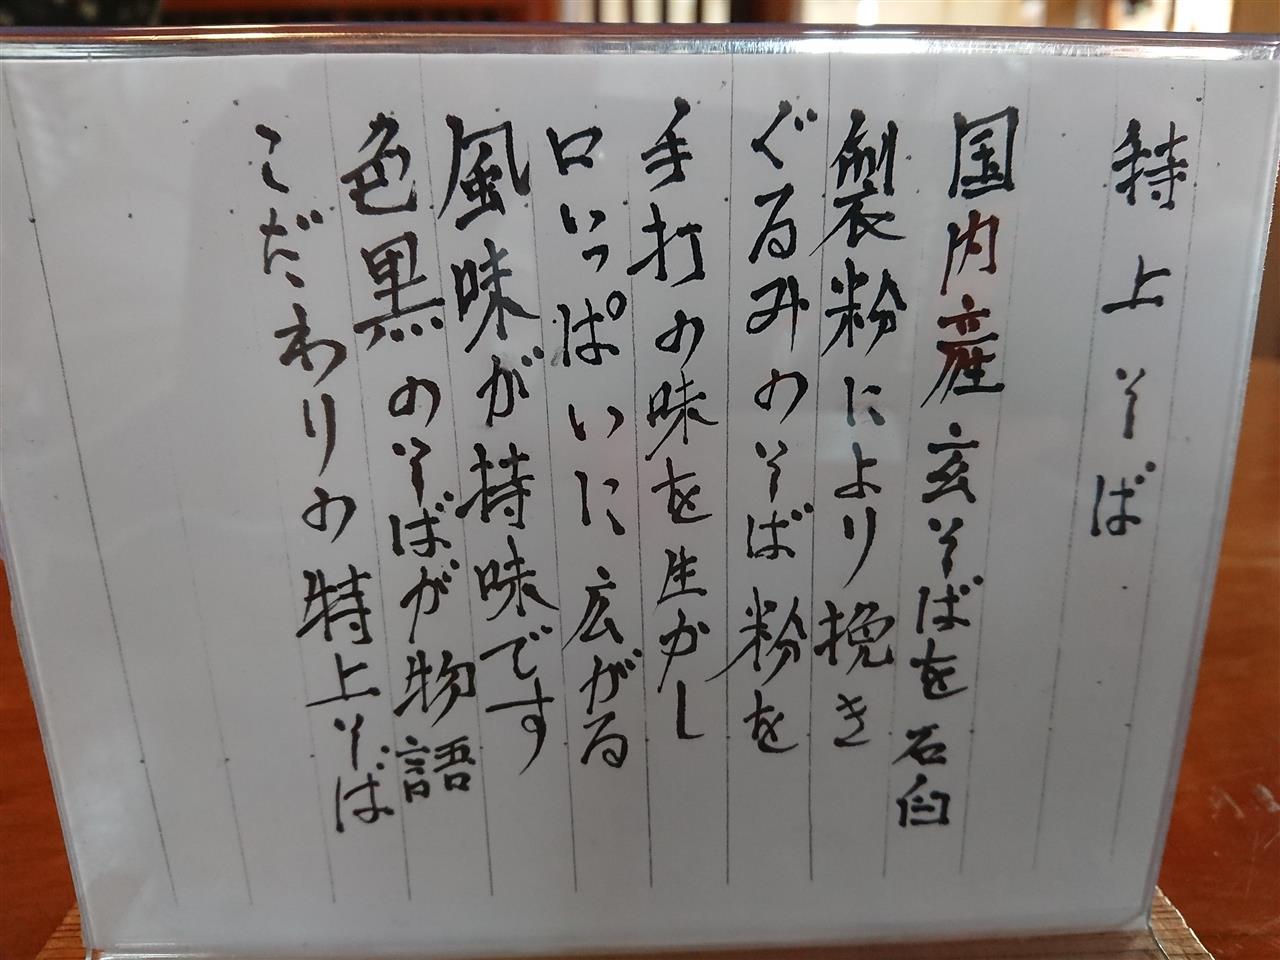 特上そば
国内産玄そばを石臼
製粉により挽き
ぐるみのそば粉を
手打の味を生かし
口いっぱいに広がる
風味が持味です
色黒のそばが物語
こだわりの特上そば